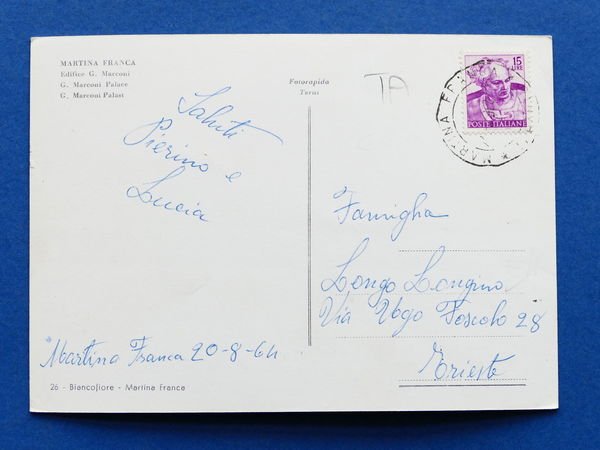 MARTINA FRANCA
Edifice G. Marconi
G. Marconi Palace
G. Marconi Palast
Fotorapida
Terni
TA
15
LIRE
POSTE ITALIANE
MARTINA FRANCA
Saluti
Pierino e
Lucia
Famiglia
Longo Longino
Via Ugo Foscolo 28
Trieste
Martina Franca 20-8-64
26 - Biancofiore - Martina Franca